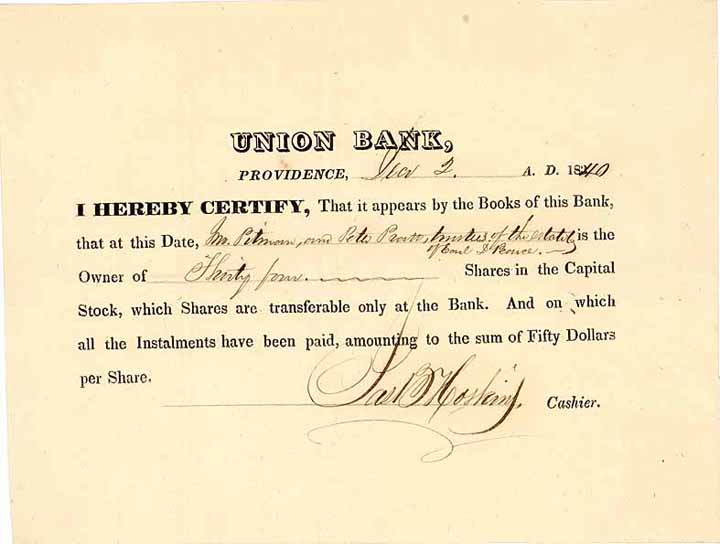 UNION BANK,
PROVIDENCE, Dec 2. A. D. 1840
I HEREBY CERTIFY, That it appears by the Books of this Bank,
that at this Date, Pitman, and Peter Pratt, trustees of the estate is the
of Earl D Pearce.
Owner of Thirty four Shares in the Capital
Stock, which Shares are transferable only at the Bank. And on which
all the Instalments have been paid, amounting to the sum of Fifty Dollars
per Share.
Hoskins, Cashier.